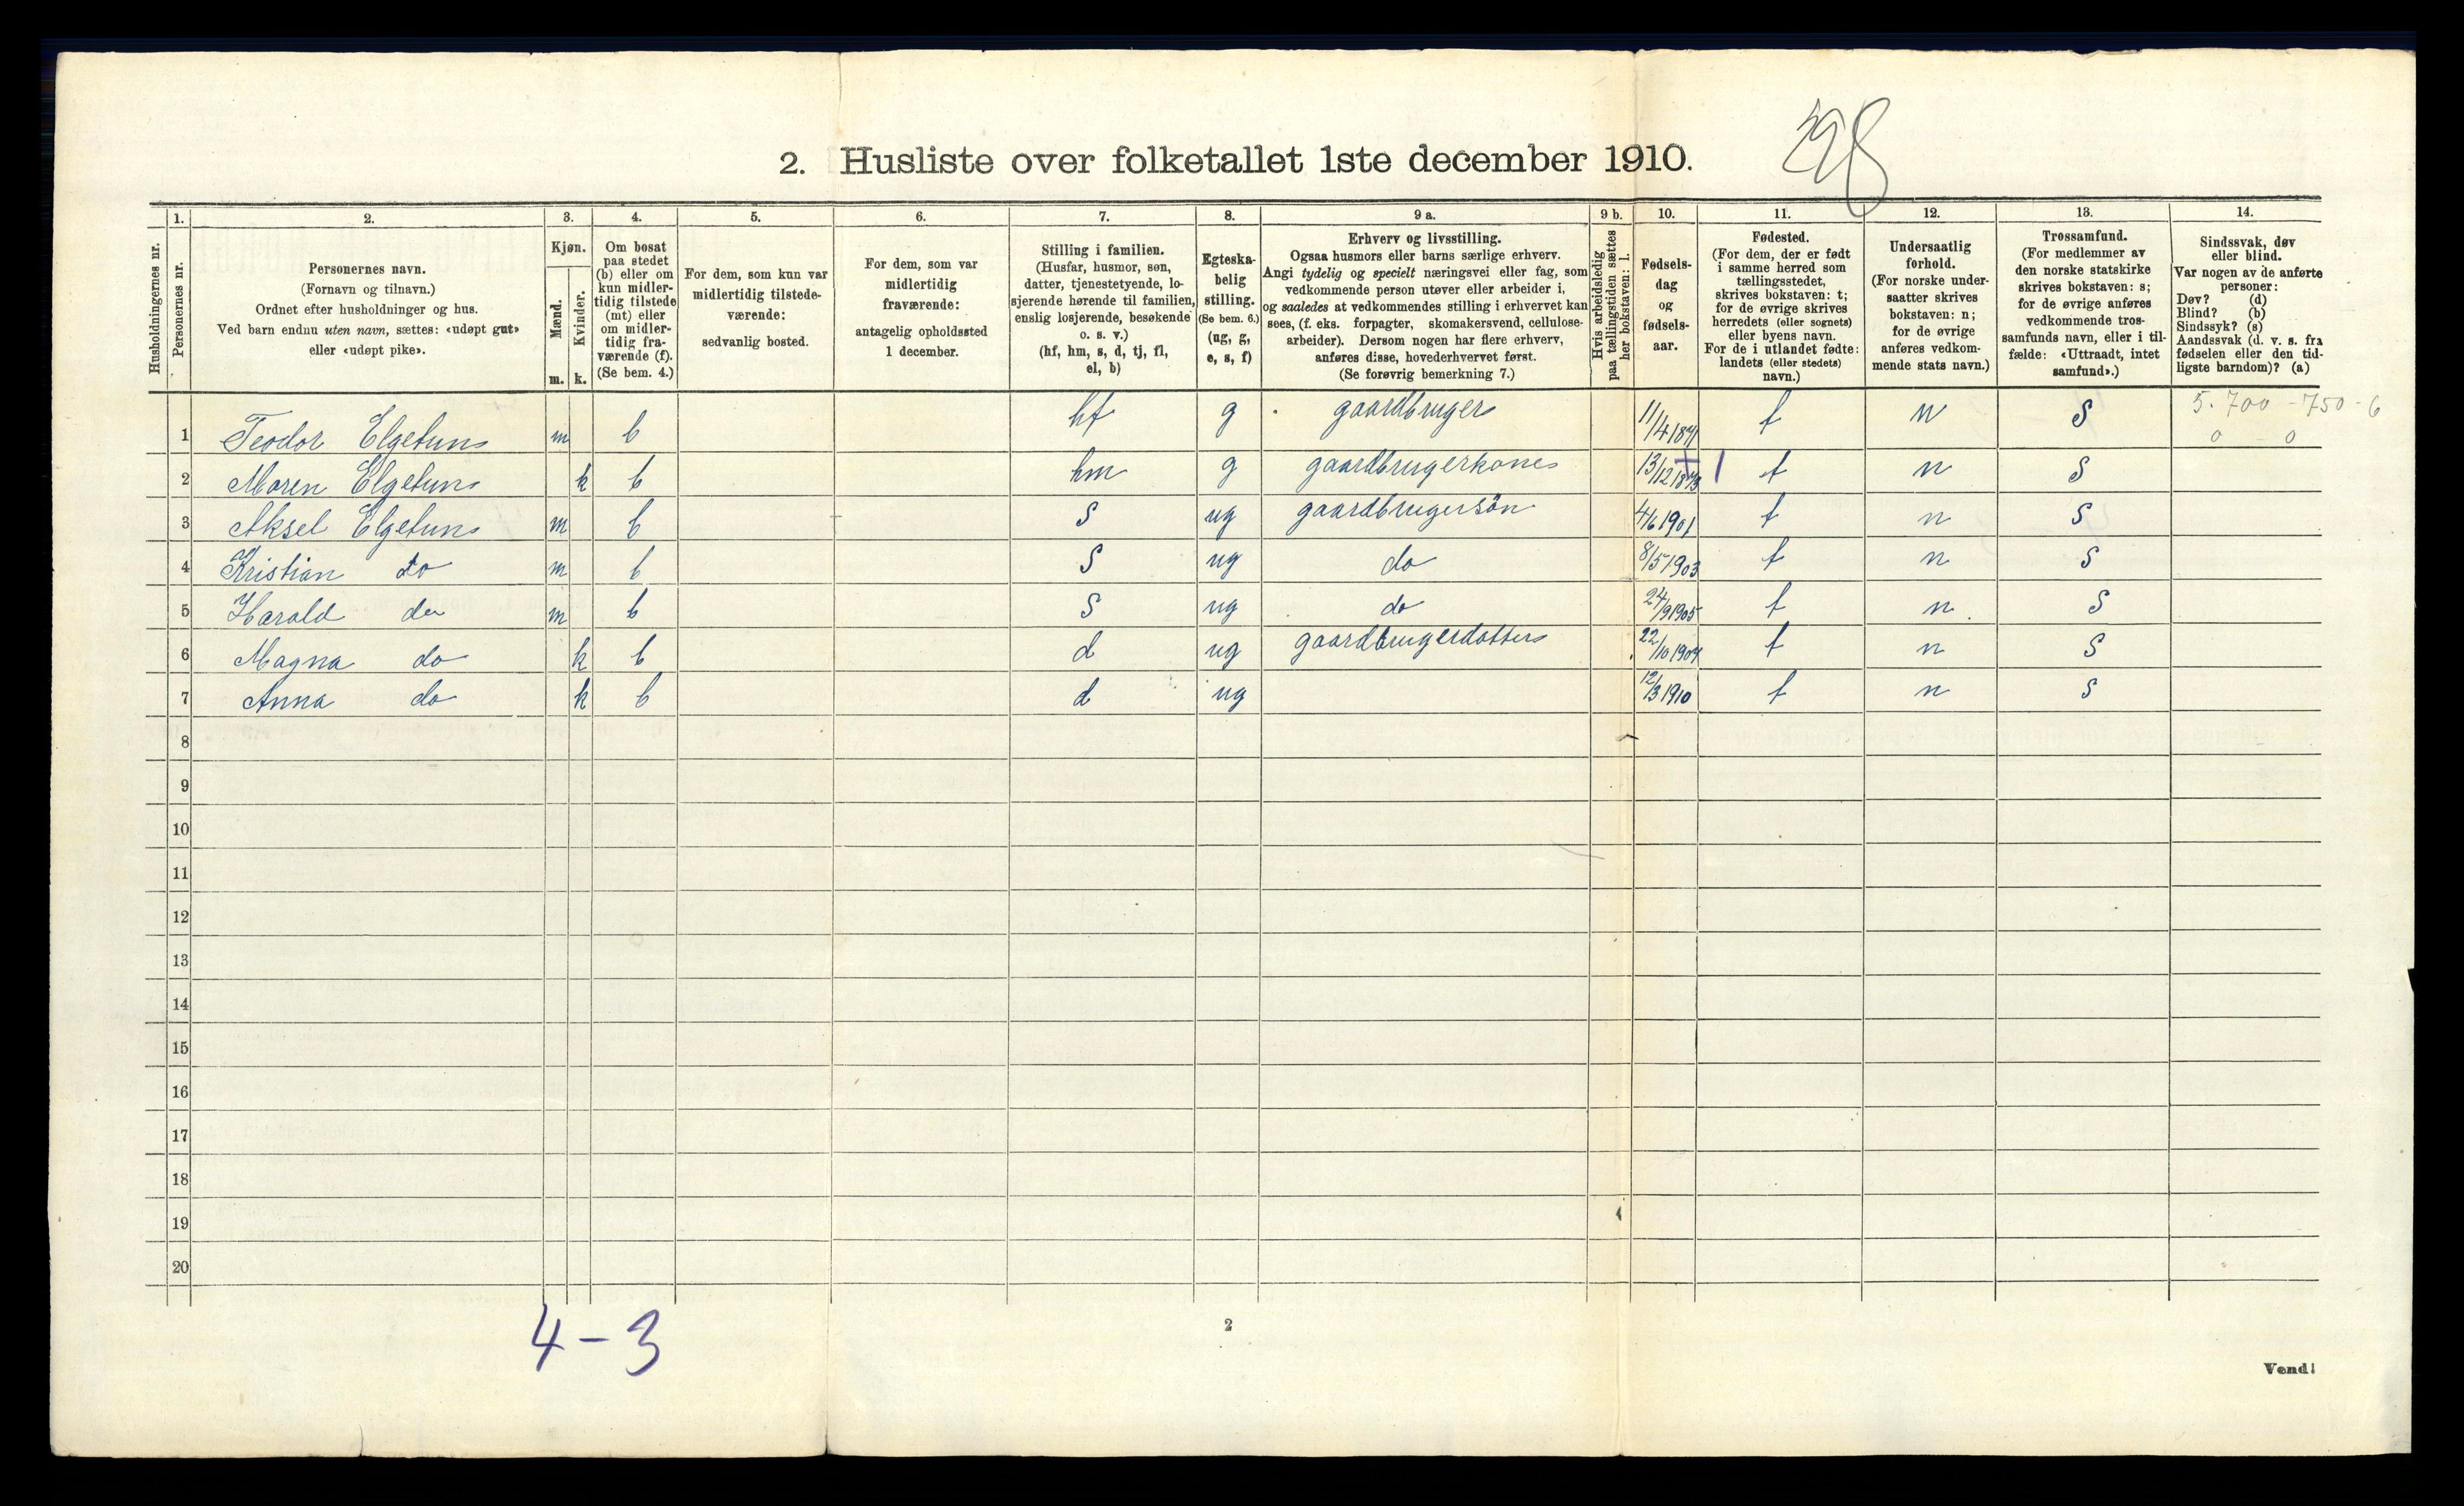 2. Husliste over folketallet 1ste december 1910.
Husholdningernes nr.
1. Personernes nr.
2. Personernes navn.
(Fornavn og tilnavn.)
Ordnet efter husholdninger og hus.
Ved barn endnu uten navn, sættes: «udøpt gut»
eller «udøpt pike».
3. Kjøn.
Mænd. Kvinder.
m. k.
4. Om bosat
paa stedet
(b) eller om
kun midler-
tidig tilstede
(mt) eller
om midler-
tidig fra-
værende (f).
(Se bem. 4.)
5. For dem, som kun var
midlertidig tilstede-
værende:
sedvanlig bosted.
6. For dem, som var
midlertidig
fraværende:
antagelig opholdssted
1 december.
7. Stilling i familien.
(Husfar, husmor, søn,
datter, tjenestetyende, lo-
sjerende hørende til familien,
enslig losjerende, besøkende
o. s. v.)
(hf, hm, s, d, tj, fl,
el, b)
8. Egteska-
belig
stilling.
(Se bem. 6.)
(ug, g,
e, s, f)
9 a. Erhverv og livsstilling.
Ogsaa husmors eller barns særlige erhverv.
Angi tydelig og specielt næringsvei eller fag, som
vedkommende person utøver eller arbeider i,
og saaledes at vedkommendes stilling i erhvervet kan
sees, (f. eks. forpagter, skomakersvend, cellulose-
arbeider). Dersom nogen har flere erhverv,
anføres disse, hovederhvervet først.
(Se forøvrig bemerkning 7.)
9 b. Hvis arbeidsledig
paa tællingstiden sættes
her bokstaven: l.
10. Fødsels-
dag
og
fødsels-
aar.
11. Fødested.
(For dem, der er født
i samme herred som
tællingsstedet,
skrives bokstaven: t;
for de øvrige skrives
herredets (eller sognets)
eller byens navn.
For de i utlandet fødte:
landets (eller stedets)
navn.)
12. Undersaatlig
forhold.
(For norske under-
saatter skrives
bokstaven: n;
for de øvrige
anføres vedkom-
mende stats navn.)
13. Trossamfund.
(For medlemmer av
den norske statskirke
skrives bokstaven: s;
for de øvrige anføres
vedkommende tros-
samfunds navn, eller i til-
fælde: «Uttraadt, intet
samfund».)
14. Sindssvak, døv
eller blind.
Var nogen av de anførte
personer:
Døv? (d)
Blind? (b)
Sindssyk? (s)
Aandssvak (d. v. s. fra
fødselen eller den tid-
ligste barndom)? (a)
5. 700 - 750 - 6
0 - 0
1 Teodor Elgetun m b hf g gaardbruger 11/4 1871 t n S
2 Maren Elgetun k b hm g gaardbrugerkone 13/12 1873 t n S
3 Aksel Elgetun m b S ug gaardbrugersön 4/6 1901 t n S
4 Kristian do m b S ug do 8/5 1903 t n S
5 Harald do m b S ug do 24/9 1905 t n S
6 Magna do k b d ug gaardbrugerdatter 22/10 1907 t n S
7 Anna do k b d ug 12/3 1910 t n S
8
9
10
11
12
13
14
15
16
17
18
19
20
4 - 3
2
Vend!